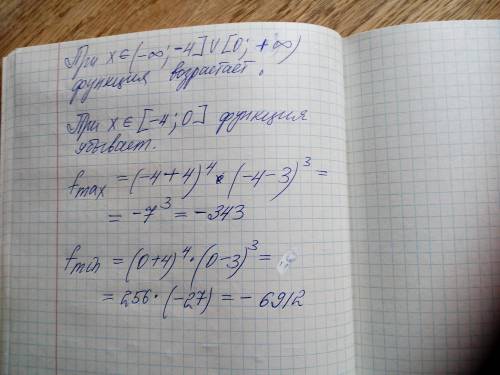 При x ∈ (-∞; -4] ∪ [0; +∞)
функция возрастает.
При x ∈ [-4; 0] функция
убывает.
f max = (-4+4)⁴ · (-4-3)³ =
= -7³ = -343
f min = (0+4)⁴ · (0-3)³ =
= 256 · (-27) = - 6912